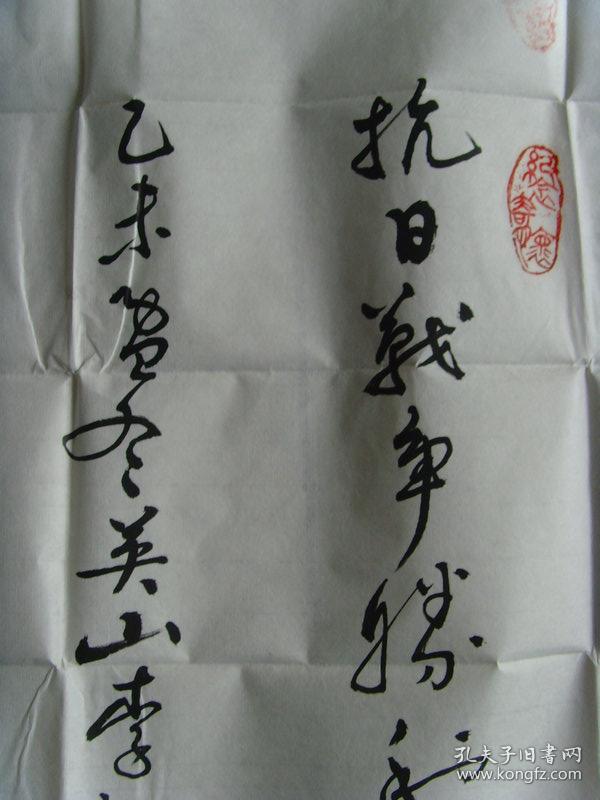 抗日战争勝利
乙未暮冬英山李
孔夫子旧書网
www.kongfz.com